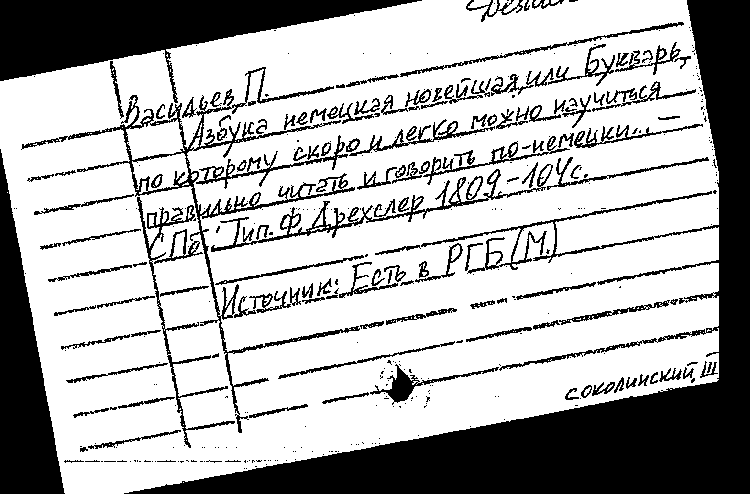 Васильев, П.
Азбука немецкая новейшая, или Букварь,
по которому скоро и легко можно научиться
правильно читать и говорить по-немецки... —
СПб.: Тип. Ф. Дрехслер, 1809. - 104 с.
Источник: Есть в РГБ (М.)
Соколинский, III